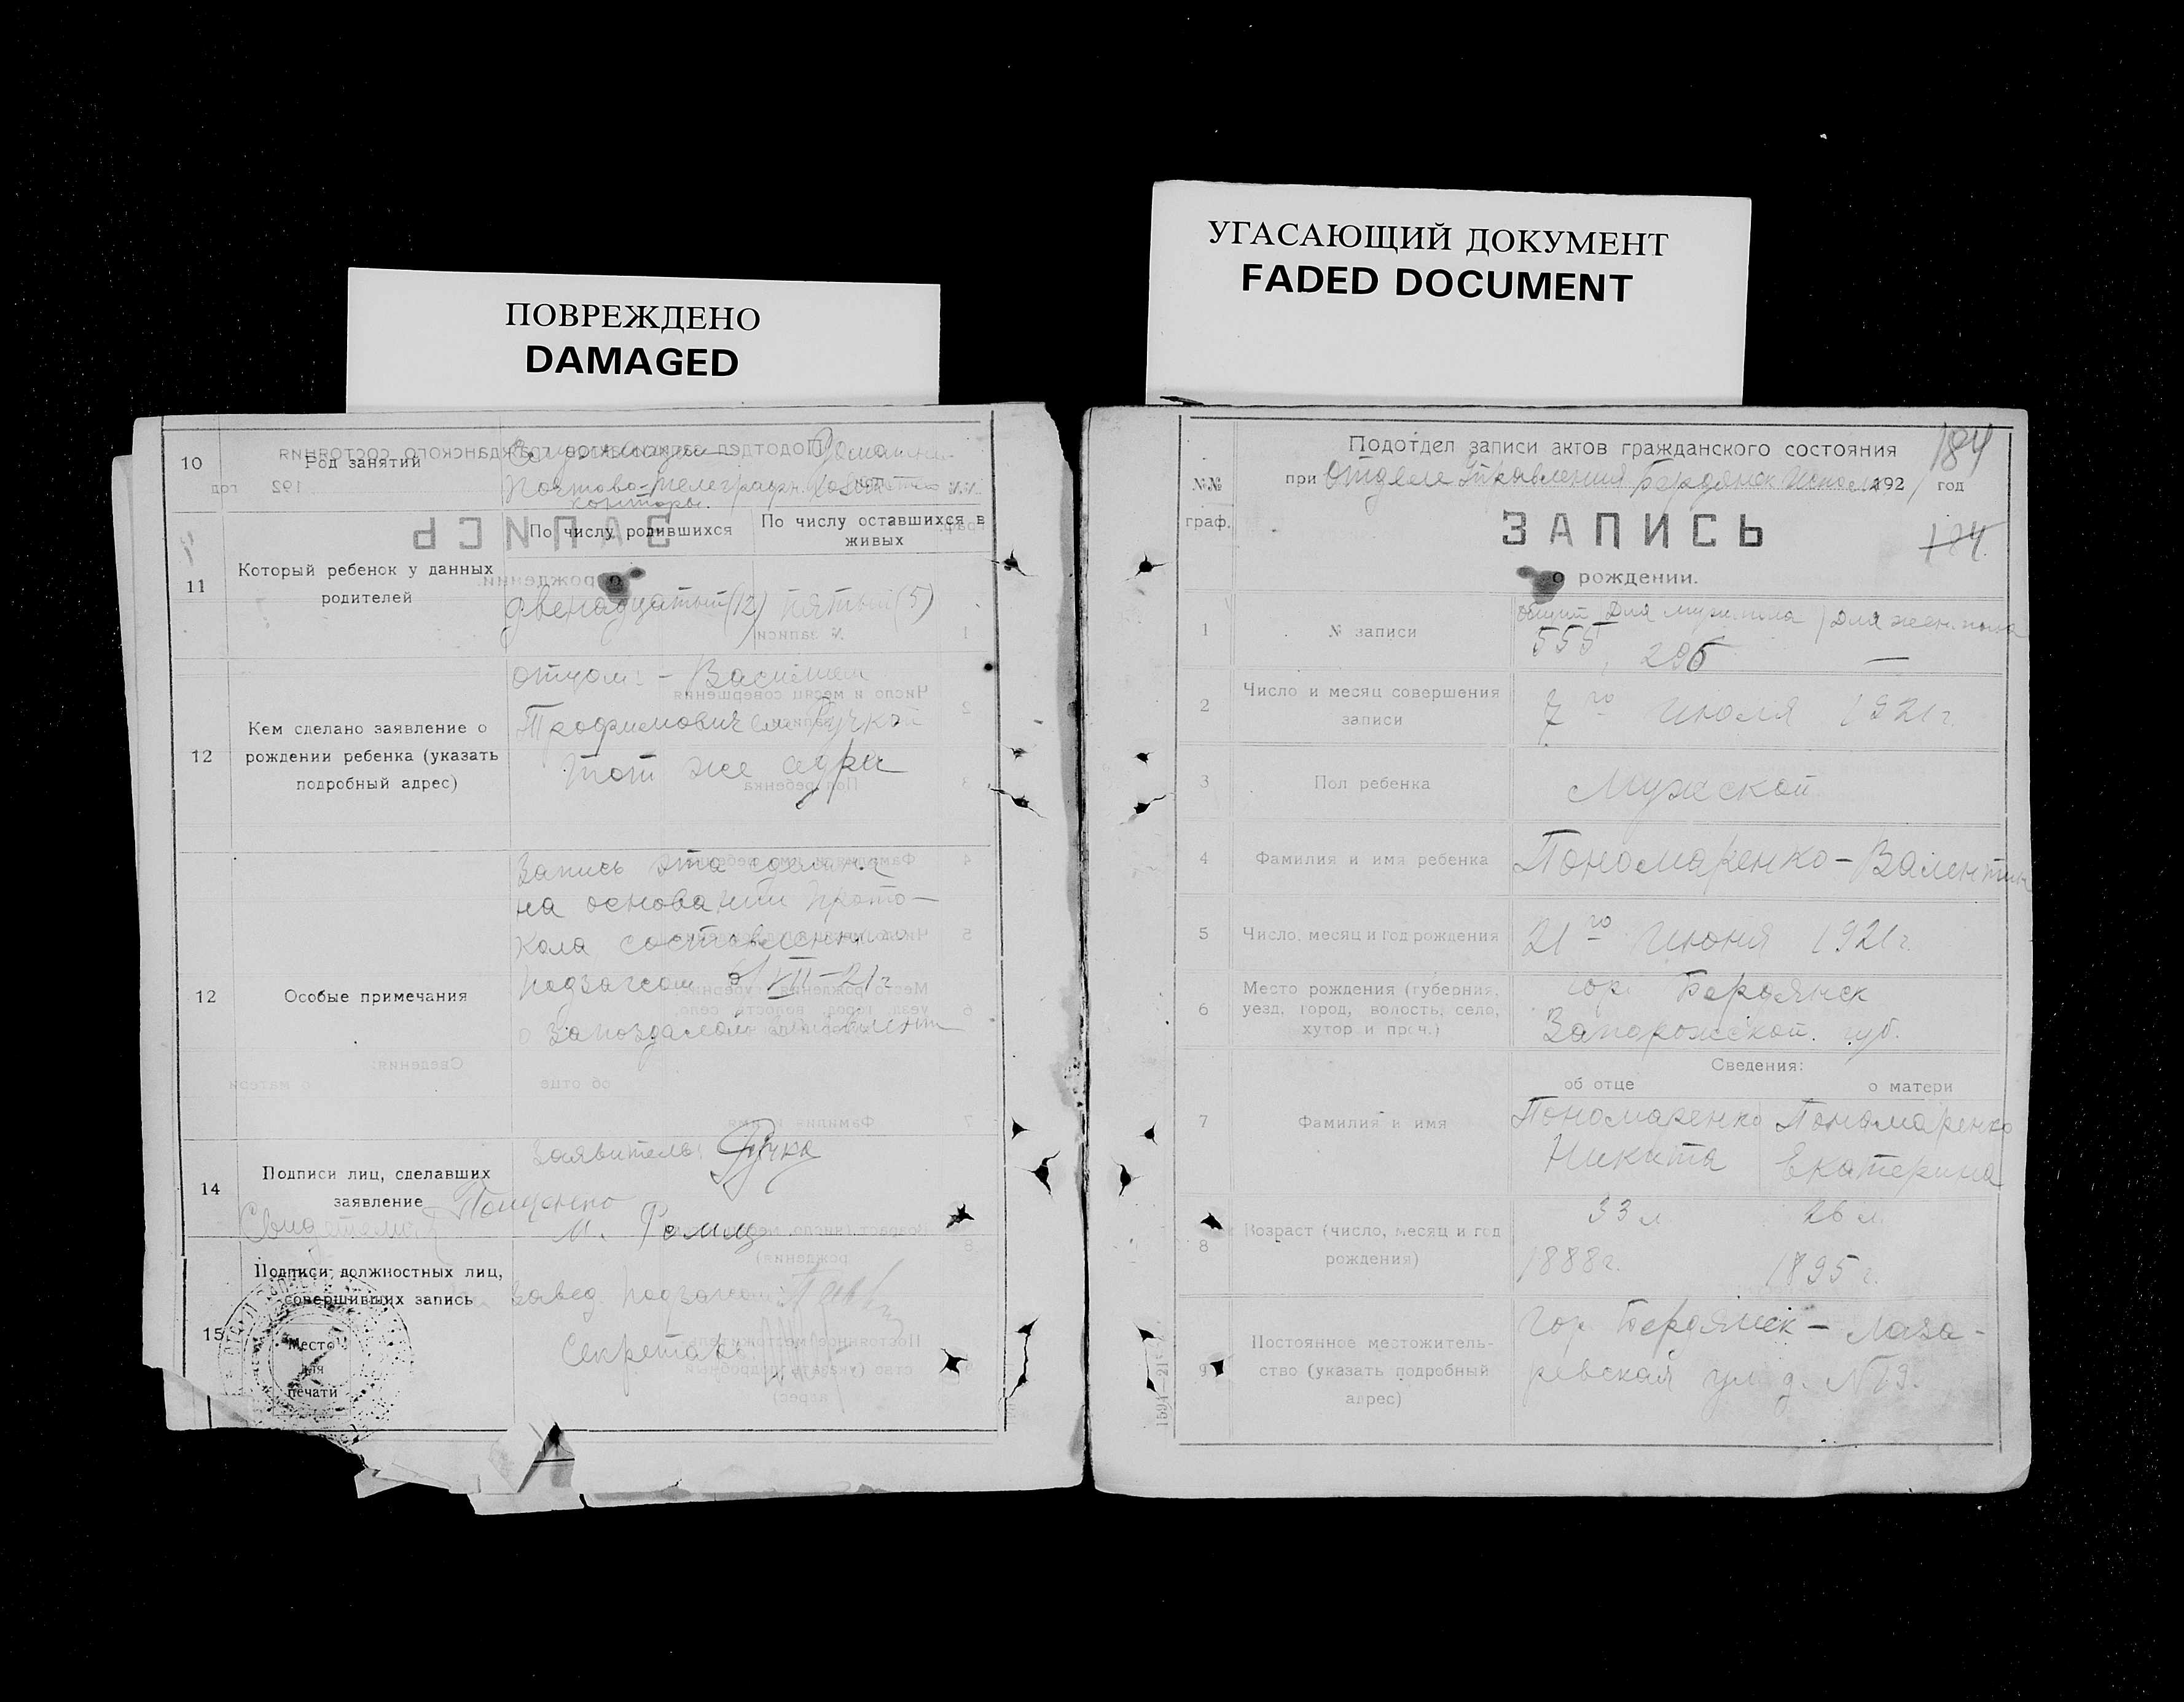 ПОВРЕЖДЕНО
DAMAGED
10
Род занятий
Почтово-телеграфн.
конторы.
11
Который ребенок у данных
родителей
По числу родившихся
По числу оставшихся в
живых
двенадцатый (12)
пятый (5)
12
Кем сделано заявление о
рождении ребенка (указать
подробный адрес)
отцом: - Василием
Трофимовичем Ручкой
Тот же адрес
12
Особые примечания
Запись эта сделана
на основании прото-
кола составленного
подзагсом VII-21 г.
о запоздалом
14
Подписи лиц, сделавших
заявление
Заявитель: Ручка
Свидетели
15
Подписи должностных лиц,
совершивших запись
Завед. подзагсом
Секретарь
Место
для
печати
УГАСАЮЩИЙ ДОКУМЕНТ
FADED DOCUMENT
184
Подотдел записи актов гражданского состояния
при Отделе Управления Бердянск Исполк 1921 год
№№
граф.
ЗАПИСЬ
о рождении.
184.
1
№ записи
Общий | Для муж. пола | Для жен. пола
555, 296 —
2
Число и месяц совершения
записи
7го июля 1921 г.
3
Пол ребенка
Мужской
4
Фамилия и имя ребенка
Пономаренко - Валентин
5
Число, месяц и год рождения
21го июня 1921 г.
6
Место рождения (губерния,
уезд, город, волость, село,
хутор и проч.)
гор. Бердянск
Запорожской губ.
Сведения:
об отце
о матери
7
Фамилия и имя
Пономаренко
Никита
Пономаренко
Екатерина
8
Возраст (число, месяц и год
рождения)
33 л.
26 л.
1888 г.
1895 г.
9
Постоянное местожитель-
ство (указать подробный
адрес)
гор. Бердянск - Лаза-
ревская ул. д.